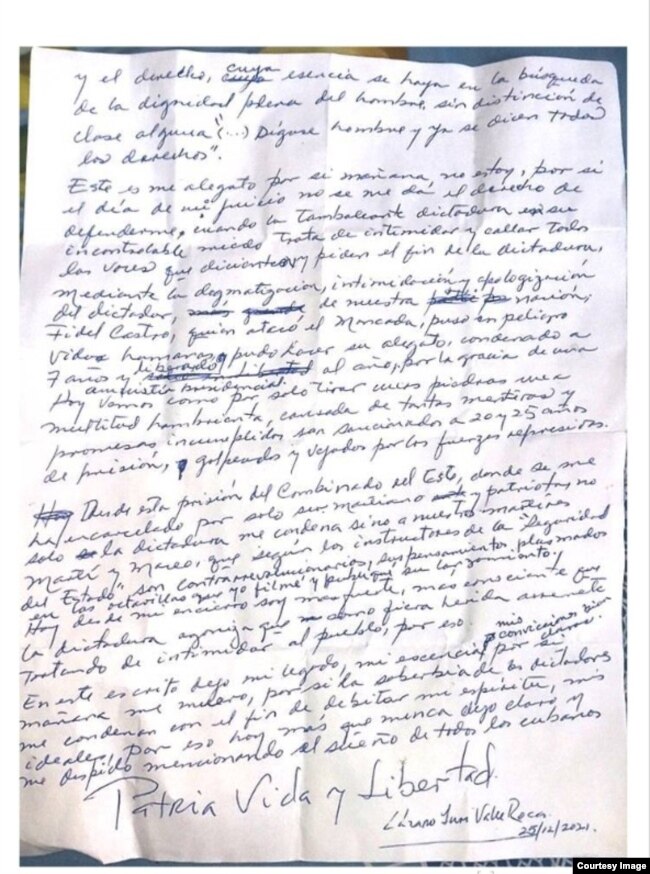 y el derecho, cuya esencia se haya en la búsqueda
de la dignidad plena del hombre, sin distinción de
clase alguna "(...) Dígase hombre y ya se dicen todos
los derechos".
Este es mi alegato por si mañana no estoy, por si
el día de mi juicio no se me dá el derecho de
defenderme, cuando la tambaleante dictadura en su
incontrolable miedo trata de intimidar y callar todas
las voces que disienten y piden el fin de la dictadura,
mediante la dogmatización, intimidación y apologización
del dictador de nuestra nación;
Fidel Castro, quien atacó el Moncada, puso en peligro
vidas humanas, pudo hacer su alegato, condenado a
7 años y liberado al año, por la gracia de una
amnistía presidencial.
Hoy vemos como por solo tirar unas piedras una
multitud hambrienta, cansada de tantas mentiras y
promesas incumplidas son sancionados a 20 y 25 años
de prisión, golpeados y vejados por las fuerzas represivas.
Desde esta prisión del Combinado del Este, donde se me
ha encarcelado por solo ser martiano y patriota, no
solo la dictadura me condena sino a nuestros mártires
Martí y Maceo, que según los instructores de la "Seguridad
del Estado", son contrarrevolucionarios, sus pensamientos plasmados
en las octavillas que yo filmé y publiqué su lanzamiento.
Hoy desde mi encierro soy mas fuerte, mas consciente que
la dictadura agoniza que como fiera herida arremete
tratando de intimidar al pueblo, por eso mis convicciones
En este escrito dejo mi legado, mi escencia, por si
mañana me muero, por si la soberbia de los dictadores
me condenan con el fin de debitar mi espíritu, mis
ideales. Por eso hoy más que nunca dejo claro y
me despido mencionando el sueño de todos los cubanos
Patria Vida y Libertad.
Lázaro Yuri Valle Roca
25/12/2021.
Courtesy Image